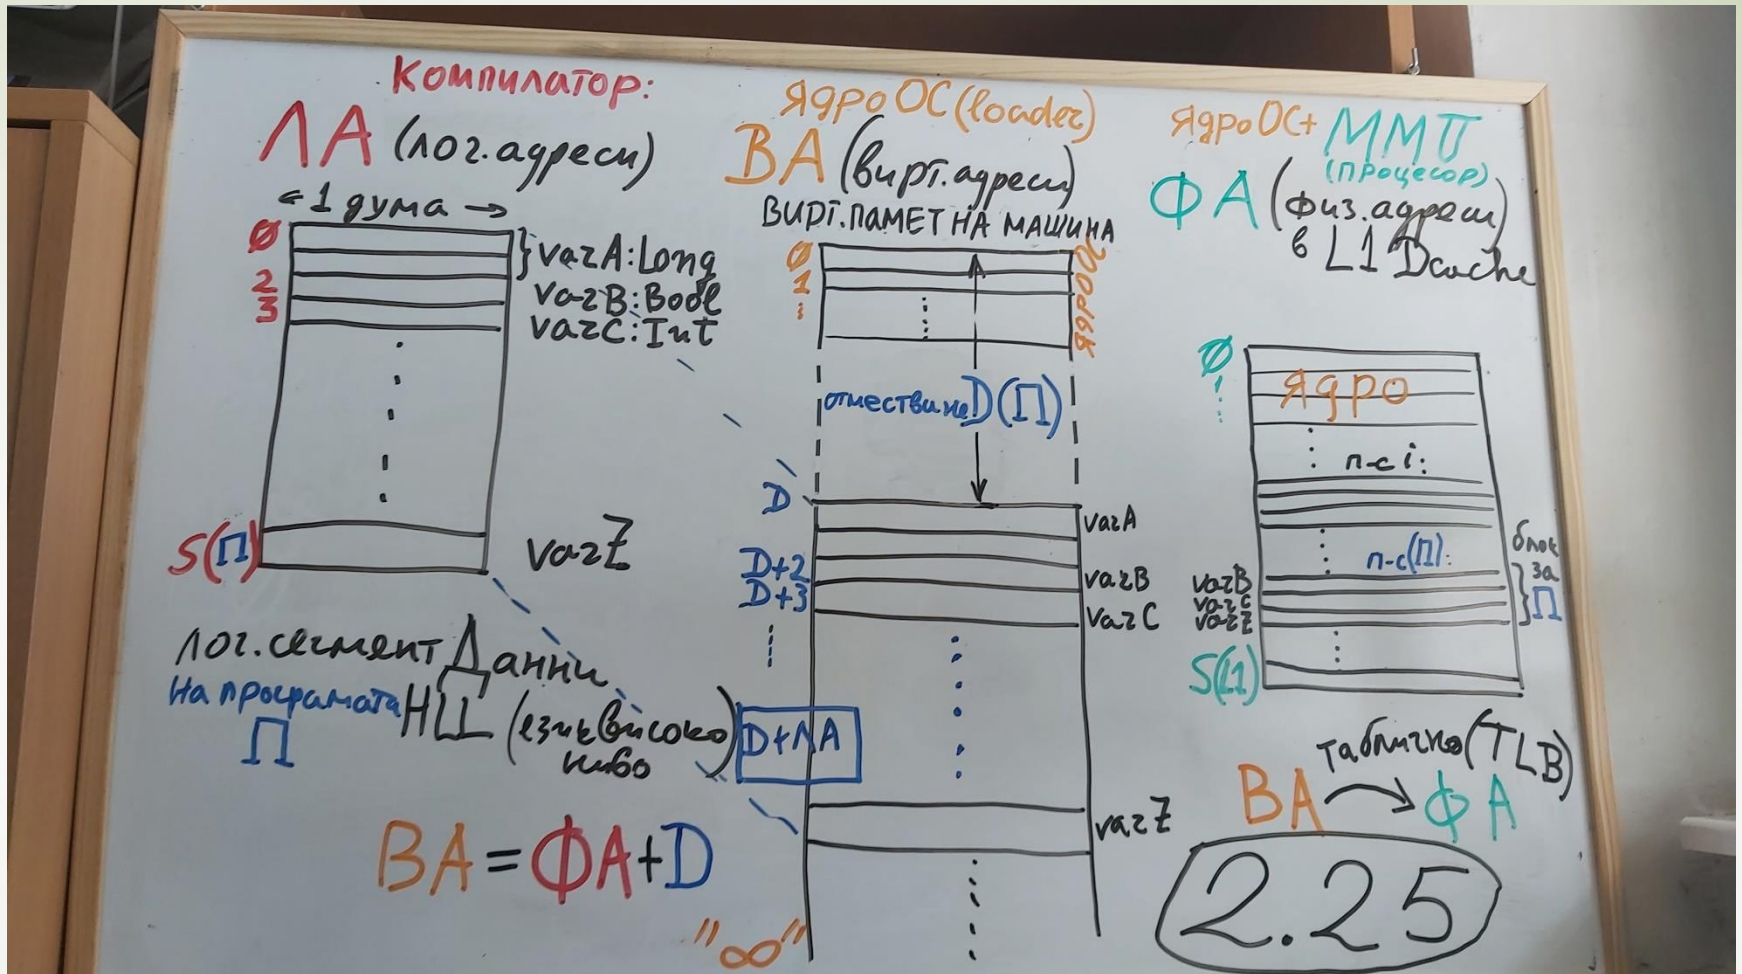 Компилатор:
ЛА (лог.адреси)
← 1 дума →
0
2
3
} varA:Long
varB:Bool
varC:Int
S(П)
varZ
лог.сегмент Данни
на програмата
П
HLL (език високо
ниво)
ВА=ФА+D
Ядро ОС (loader)
ВА (вирт.адреси)
ВИРТ.ПАМЕТ НА МАШИНА
0
1
ЯДРО ОС
отместване D(П)
D
varA
D+2
varB
D+3
varC
D+ЛА
varZ
"∞"
Ядро ОС+ ММП
(процесор)
ФА (физ.адреси)
в L1 Dcache
0
1
Ядро
п-с i:
п-с(П):
блок
за
П
varB
varC
varZ
S(L1)
таблично (TLB)
ВА → ФА
2.25